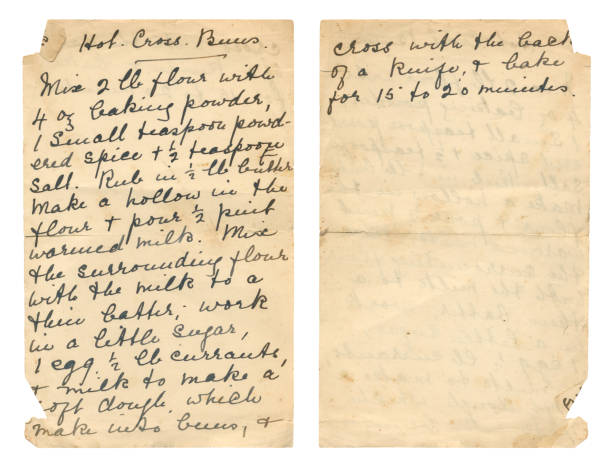 Hot. Cross. Buns.
Mix 2 lb flour with
4 oz baking powder,
1 Small teaspoon powd-
ered spice + ½ teaspoon
salt. Rub in ½ lb butter
Make a hollow in the
flour + pour ½ pint
warmed milk. Mix
the surrounding flour
with the milk to a
thin batter; work
in a little sugar,
1 egg. ½ lb currants,
+ milk to make a
soft dough, which
make into buns, +
cross with the back
of a knife, + bake
for 15 to 20 minutes.